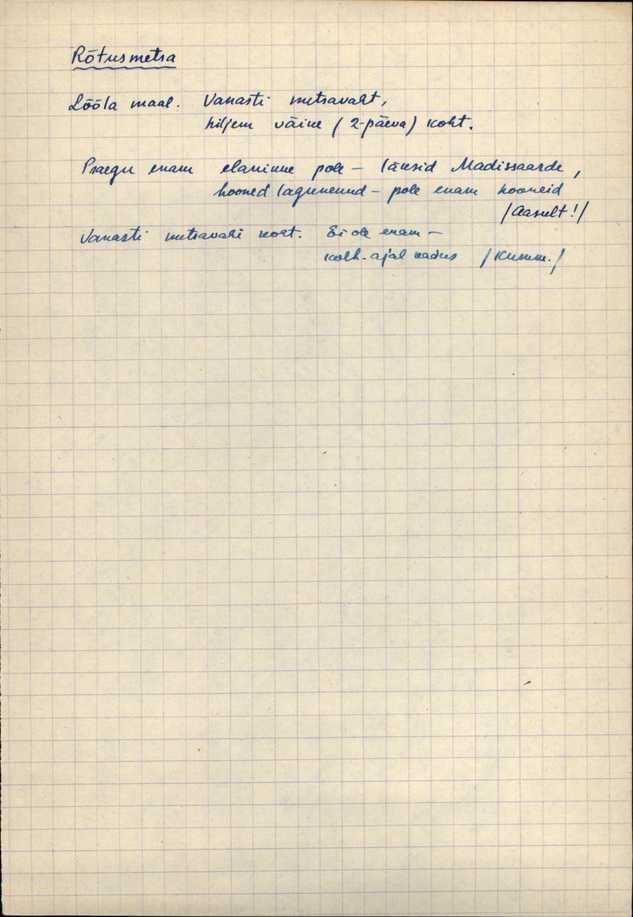 Rõtusmetsa
Lööla maal. Vanasti metsavaht,
hiljem väine (2-päeva) koht.
Praegu enam elamine pole – läksid Madissaarde,
hooned lagunenud – pole enam hooneid
/Aasult!/
Vanasti metsavahi koht. Ei ole enam –
kolh. ajal kadus /Kumm./